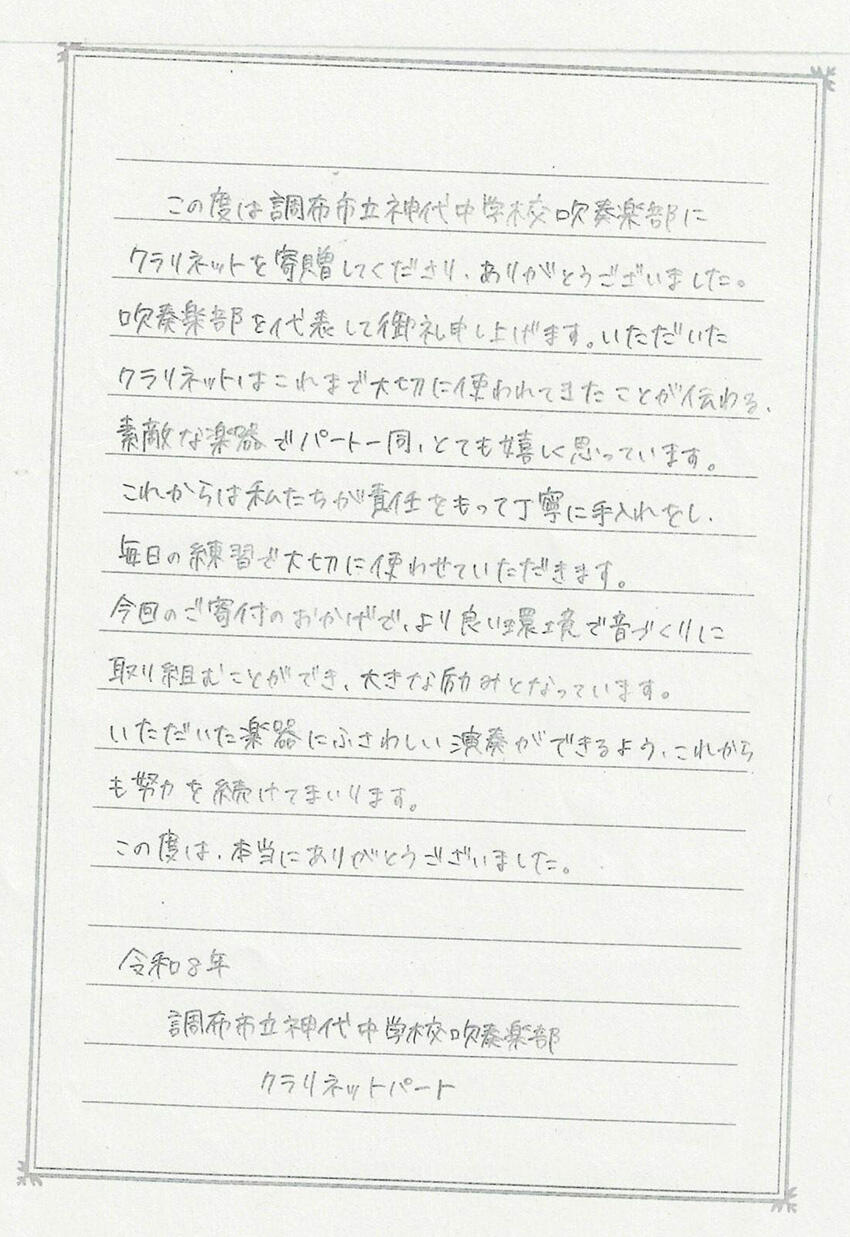 この度は調布市立神代中学校吹奏楽部に
クラリネットを寄贈してくださり、ありがとうございました。
吹奏楽部を代表して御礼申し上げます。いただいた
クラリネットはこれまで大切に使われてきたことが伝わる、
素敵な楽器でパート一同、とても嬉しく思っています。
これからは私たちが責任をもって丁寧に手入れをし、
毎日の練習で大切に使わせていただきます。
今回のご寄付のおかげで、より良い環境で音づくりに
取り組むことができ、大きな励みとなっています。
いただいた楽器にふさわしい演奏ができるよう、これから
も努力を続けてまいります。
この度は、本当にありがとうございました。
令和8年
調布市立神代中学校吹奏楽部
クラリネットパート